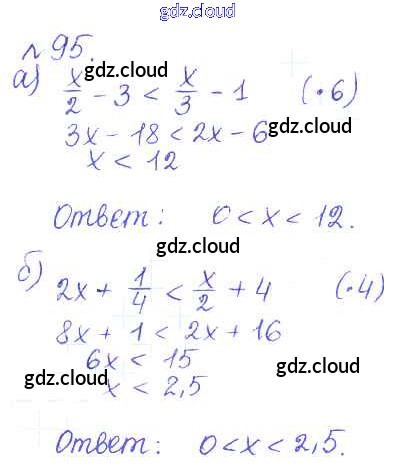 gdz.cloud
№95.
а) x/2 - 3 < x/3 - 1 (·6)
gdz.cloud gdz.cloud
3x - 18 < 2x - 6
gdz.cloud
x < 12
Ответ: 0 < x < 12.
gdz.cloud
б) 2x + 1/4 < x/2 + 4 (·4)
8x + 1 < 2x + 16
gdz.cloud
6x < 15
gdz.cloud
x < 2,5
gdz.cloud
Ответ: 0 < x < 2,5.